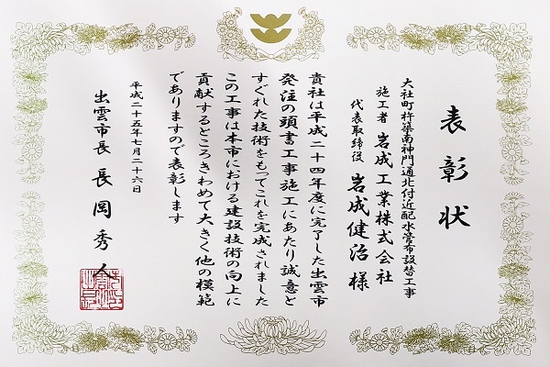 表彰状
大社町杵築南神門通北付近配水管布設替工事
施工者 岩成工業株式会社
代表取締役 岩成健治様
貴社は平成二十四年度に完了した出雲市
発注の頭書工事施工にあたり誠意と
すぐれた技術をもってこれを完成されました
この工事は本市における建設技術の向上に
貢献するところきわめて大きく他の模範
でありますので表彰します
平成二十五年七月二十六日
出雲市長 長岡秀人